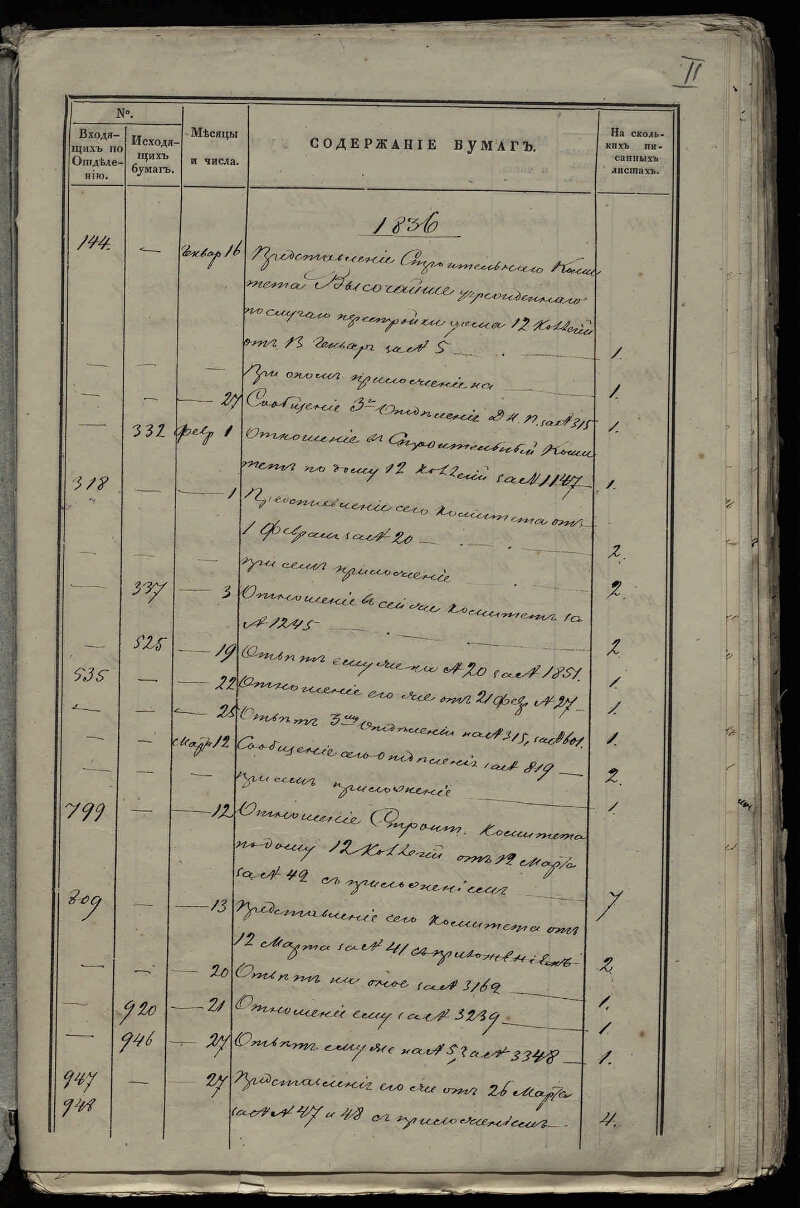 II
№.
Входящихъ по Отдѣленію.
Исходящихъ бумагъ.
Мѣсяцы и числа.
СОДЕРЖАНІЕ БУМАГЪ.
На сколькихъ писанныхъ листахъ.
1836
144. — Генвар 16 Представленіе Строительнаго Коми
тета Высочайше учрежденнаго
по случаю перестройки дома 12 Коллегій
отъ 13 Генваря за № 5 — 1.
— — При ономъ приложеніе на — 1.
— — — 27 Сообщеніе 3го Отдѣленіе Д. Н. П. за № 315 1.
— 332 Февр 1 Отношеніе въ Строительный Коми
тетъ по дому 12 Коллегій за № 1147 — 1.
318 — — 1 Представленіе сего Комитета отъ
1 Февраля за № 20 — 2.
— — — при семъ приложеніе 2.
— 337 — 3 Отношеніе въ сей же Комитетъ за
№ 1245 — 2
— 525 — 19 Отвѣтъ ему же на № 20 за № 1851. 1.
535 — — 22 Отношеніе его же отъ 21 Февр № 27 — 1.
— — — 25 Отвѣтъ 3му Отдѣленію на № 315, за № 601. 1.
Марта 12 Сообщеніе сего Отдѣленія за № 819 — 2.
— — — при семъ приложеніе — 1.
799 — — 12 Отношеніе Строит. Комитета
по дому 12 Коллегій отъ 12 Марта
за № 42 съ приложеніемъ — 7
809 — — 13 Представленіе сего Комитета отъ
12 Марта за № 41 съ приложеніемъ 2.
— — 20 Отвѣтъ на оное за № 3162 — 1.
— 920 — 21 Отношеніе ему за № 3239 — 1
— 946 — 27 Отвѣтъ ему же на № 5, за № 3348 — 1.
947 — — 27 Представленіе его же отъ 26 Марта
948 за №№ 47 и 48 съ приложеніемъ. 4.